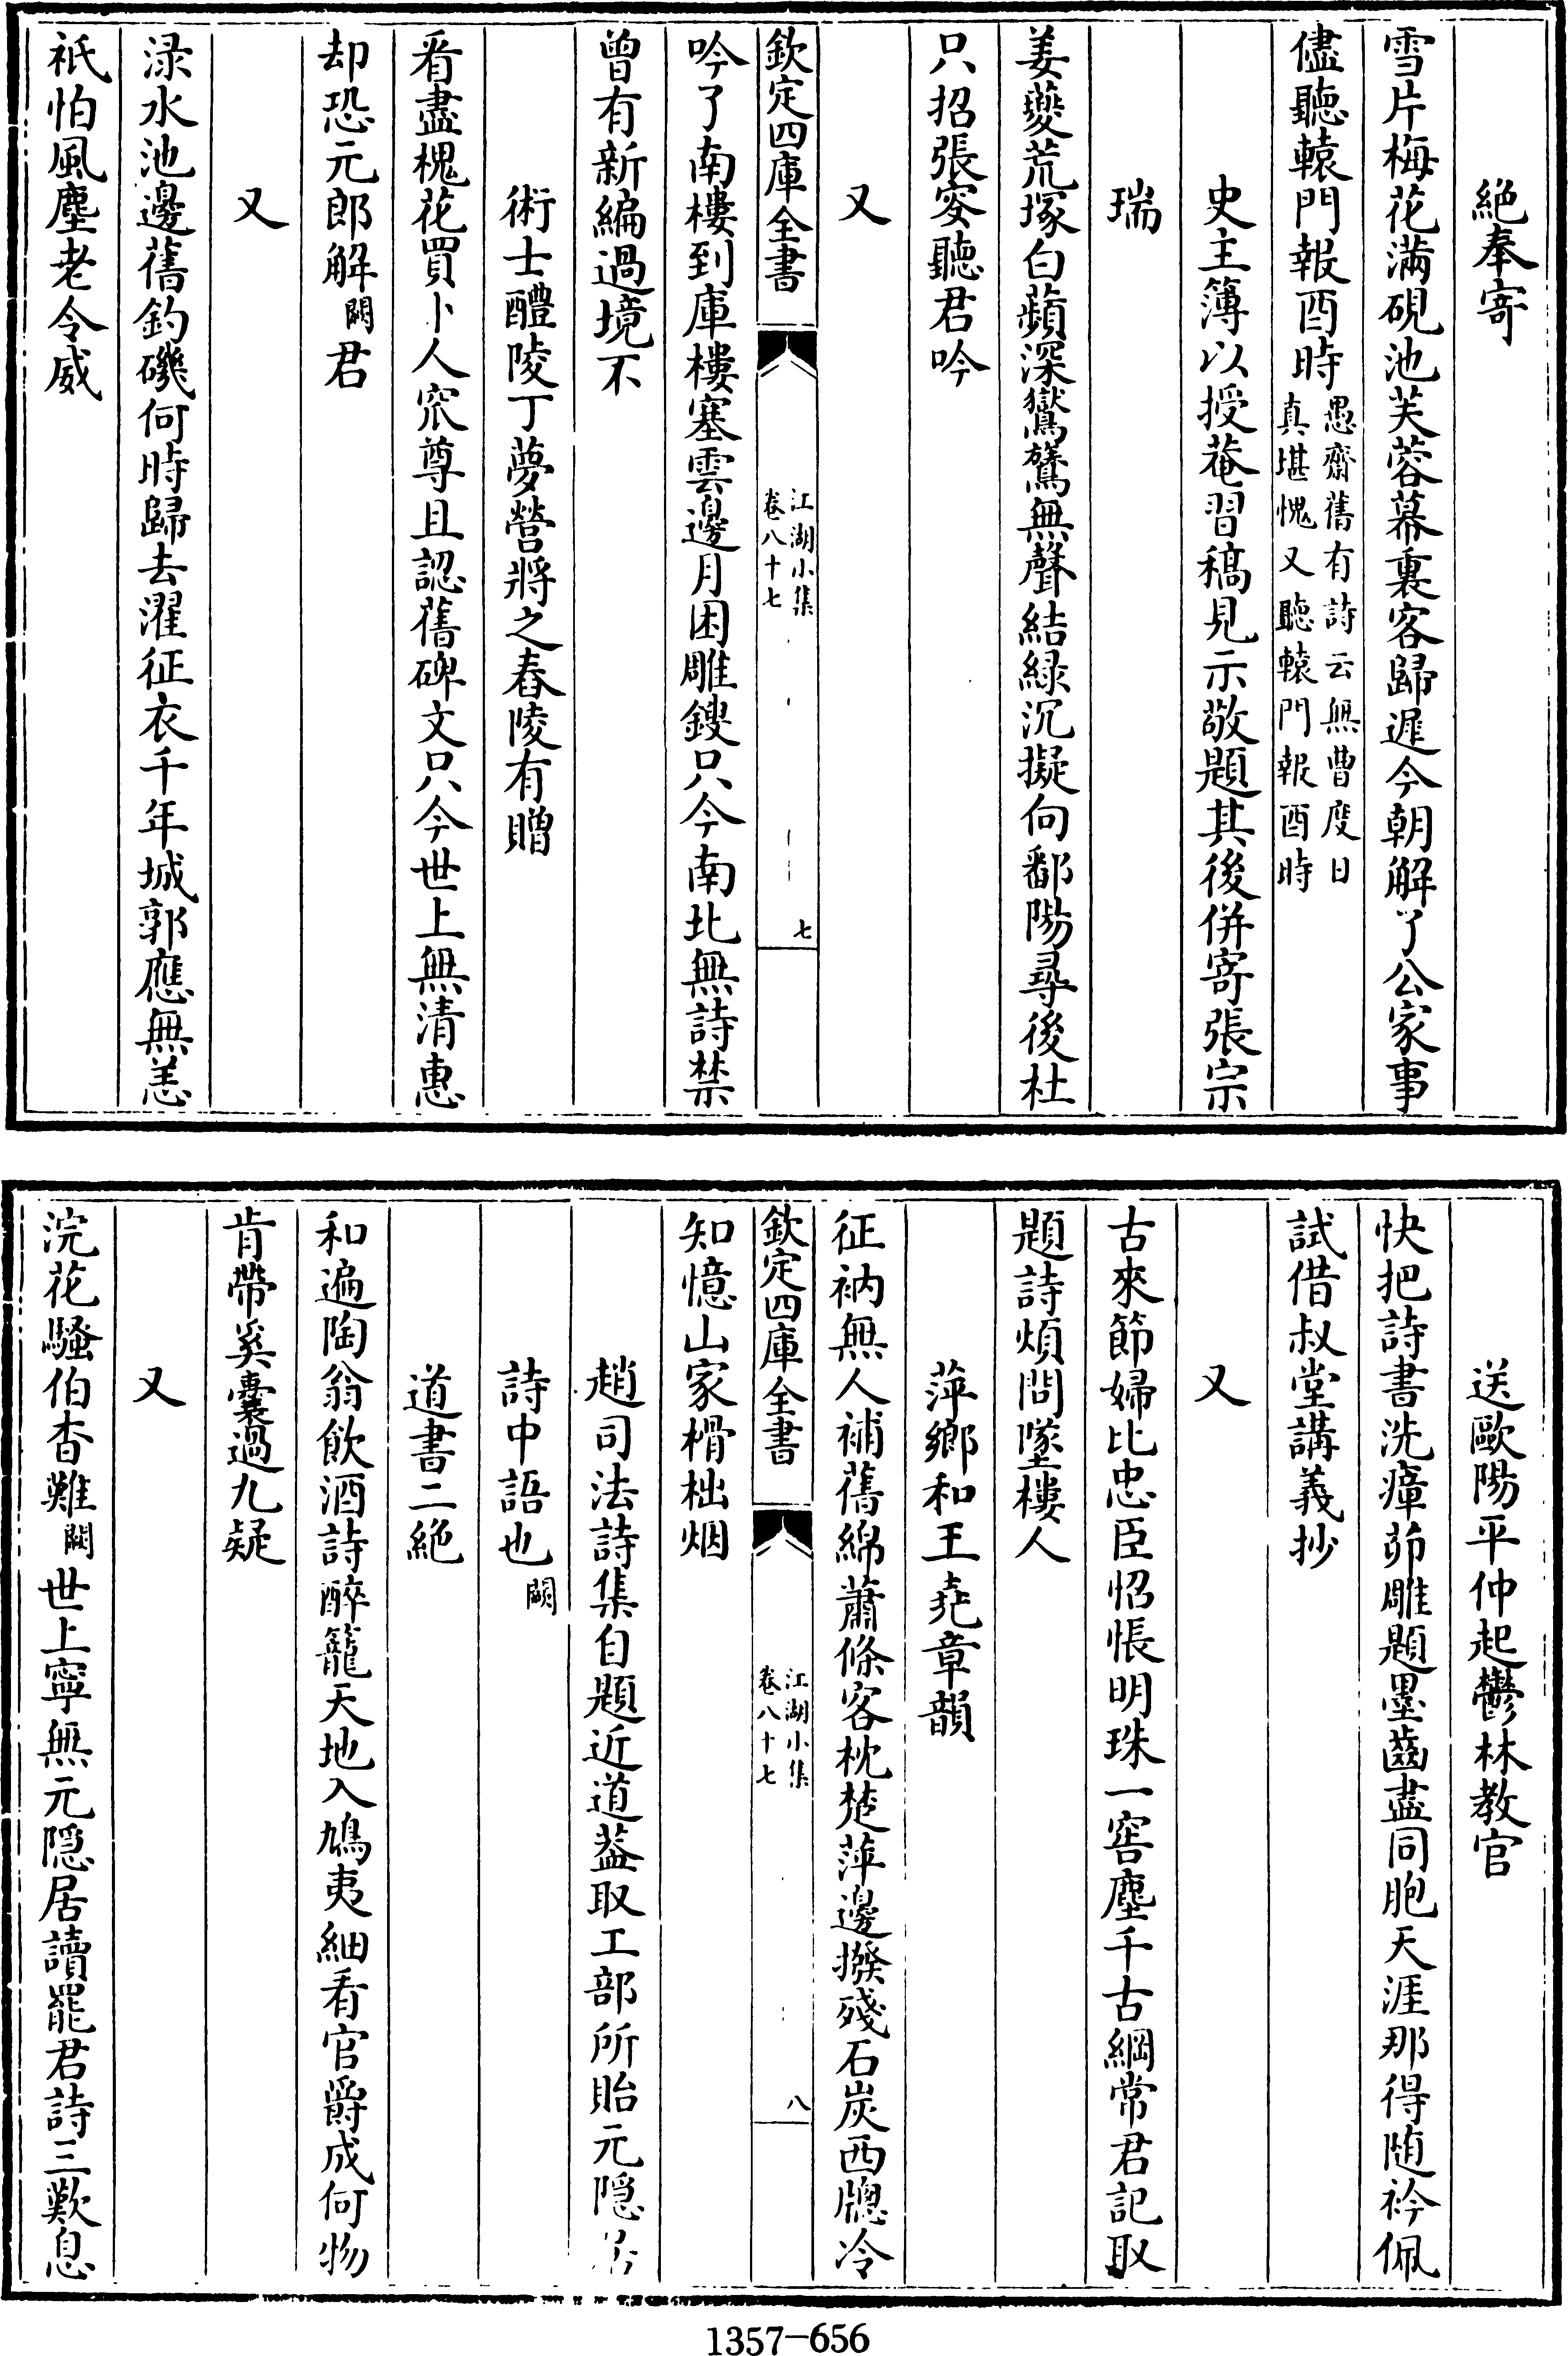 絶奉寄
雪片梅花滿硯池芙蓉幕裏客歸遲今朝解了公家事
儘聽轅門報酉時愚齋舊有詩云無曹度日
真堪愧又聽轅門報酉時
史主簿以授菴習稿見示敬題其後併寄張宗
瑞
姜夔荒塚白蘋深鸑鷟無聲結緑沉擬向鄱陽尋後杜
只招張宻聽君吟
又
欽定四庫全書
江湖小集
卷八十七
七
吟了南樓到庫樓塞雲邊月困雕鎪只今南北無詩禁
曾有新編過境不
術士醴陵丁夢營將之舂陵有贈
看盡槐花買卜人眾尊且認舊碑文只今世上無清惠
却恐元郎解闕君
又
渌水池邊舊釣磯何時歸去濯征衣千年城郭應無恙
祇怕風塵老令威
送歐陽平仲起鬱林教官
快把詩書洗瘴茆雕題墨齒盡同胞天涯那得随衿佩
試借叔堂講義抄
又
古來節婦比忠臣怊悵明珠一窖塵千古綱常君記取
題詩煩問墜樓人
萍鄉和王尭章韻
征衲無人補舊綿蕭條客枕楚萍邊撥殘石炭西牕冷
欽定四庫全書
江湖小集
卷八十七
八
知憶山家榾柮烟
趙司法詩集自題近道葢取工部所貽元隠居
詩中語也闕
道書二絶
和遍陶翁飲酒詩醉籠天地入鴟夷細看官爵成何物
肯帶奚囊過九疑
又
浣花騷伯杳難闕世上寧無元隠居讀罷君詩三歎息
1357-656